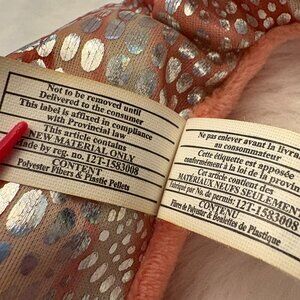 Not to be removed until
Delivered to the consumer
This label is affixed in compliance
with Provincial law
This article contains
NEW MATERIAL ONLY
Made by reg. no. 12T-1583008
CONTENT
Polyester Fibers & Plastic Pellets
Ne pas enlever avant la livrai
au consommateur
Cette étiquette est apposée
conformément à loi de la provi
Cet article contient des
MATÉRIAUX NEUFS SEULEMENT
Fabriqué par No. de permis: 12T-1583008
CONTENU
Fibres de Polyester & Boulettes de Plastique